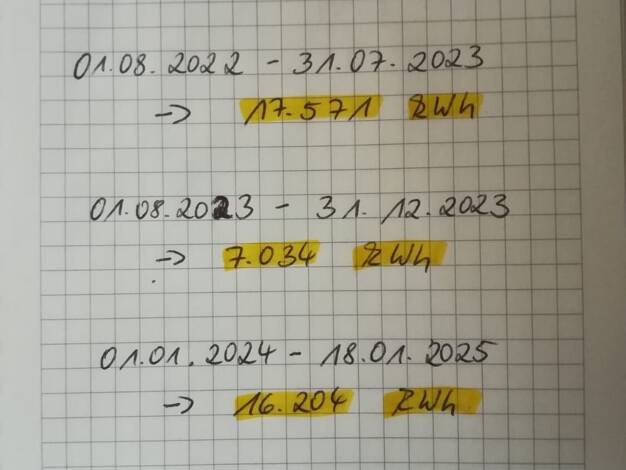 01.08.2022 - 31.07.2023
-> 17.571 kWh
01.08.2023 - 31.12.2023
-> 7.034 kWh
01.01.2024 - 18.01.2025
-> 16.204 kWh